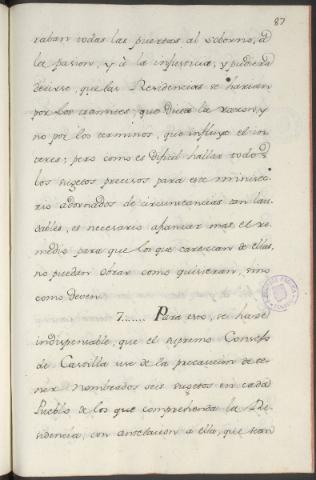 87
raban todas las puertas al soborno, â
la pasion, y â la injusticia; y pudiera
decirse, que las Residencias se harian
por los tramites, que dicta la razon, y
no por los terminos, que influye el in-
teres; pero como es dificil hallar todos
los sugetos precisos para este ministe-
rio adornados de circunstancias tan lau-
dables, es necesario afianzar mas el re-
medio para que los que carezcan de ellas,
no puedan obrar como quisieran, sino
como deven.
7...... Para esto, se hace
indispensable, que el supremo Consejo
de Castilla use de la precaucion de te-
ner nombrados seis sugetos en cada
Pueblo de los que comprehenda la Re-
sidencia, con antelacion a ella, que sean